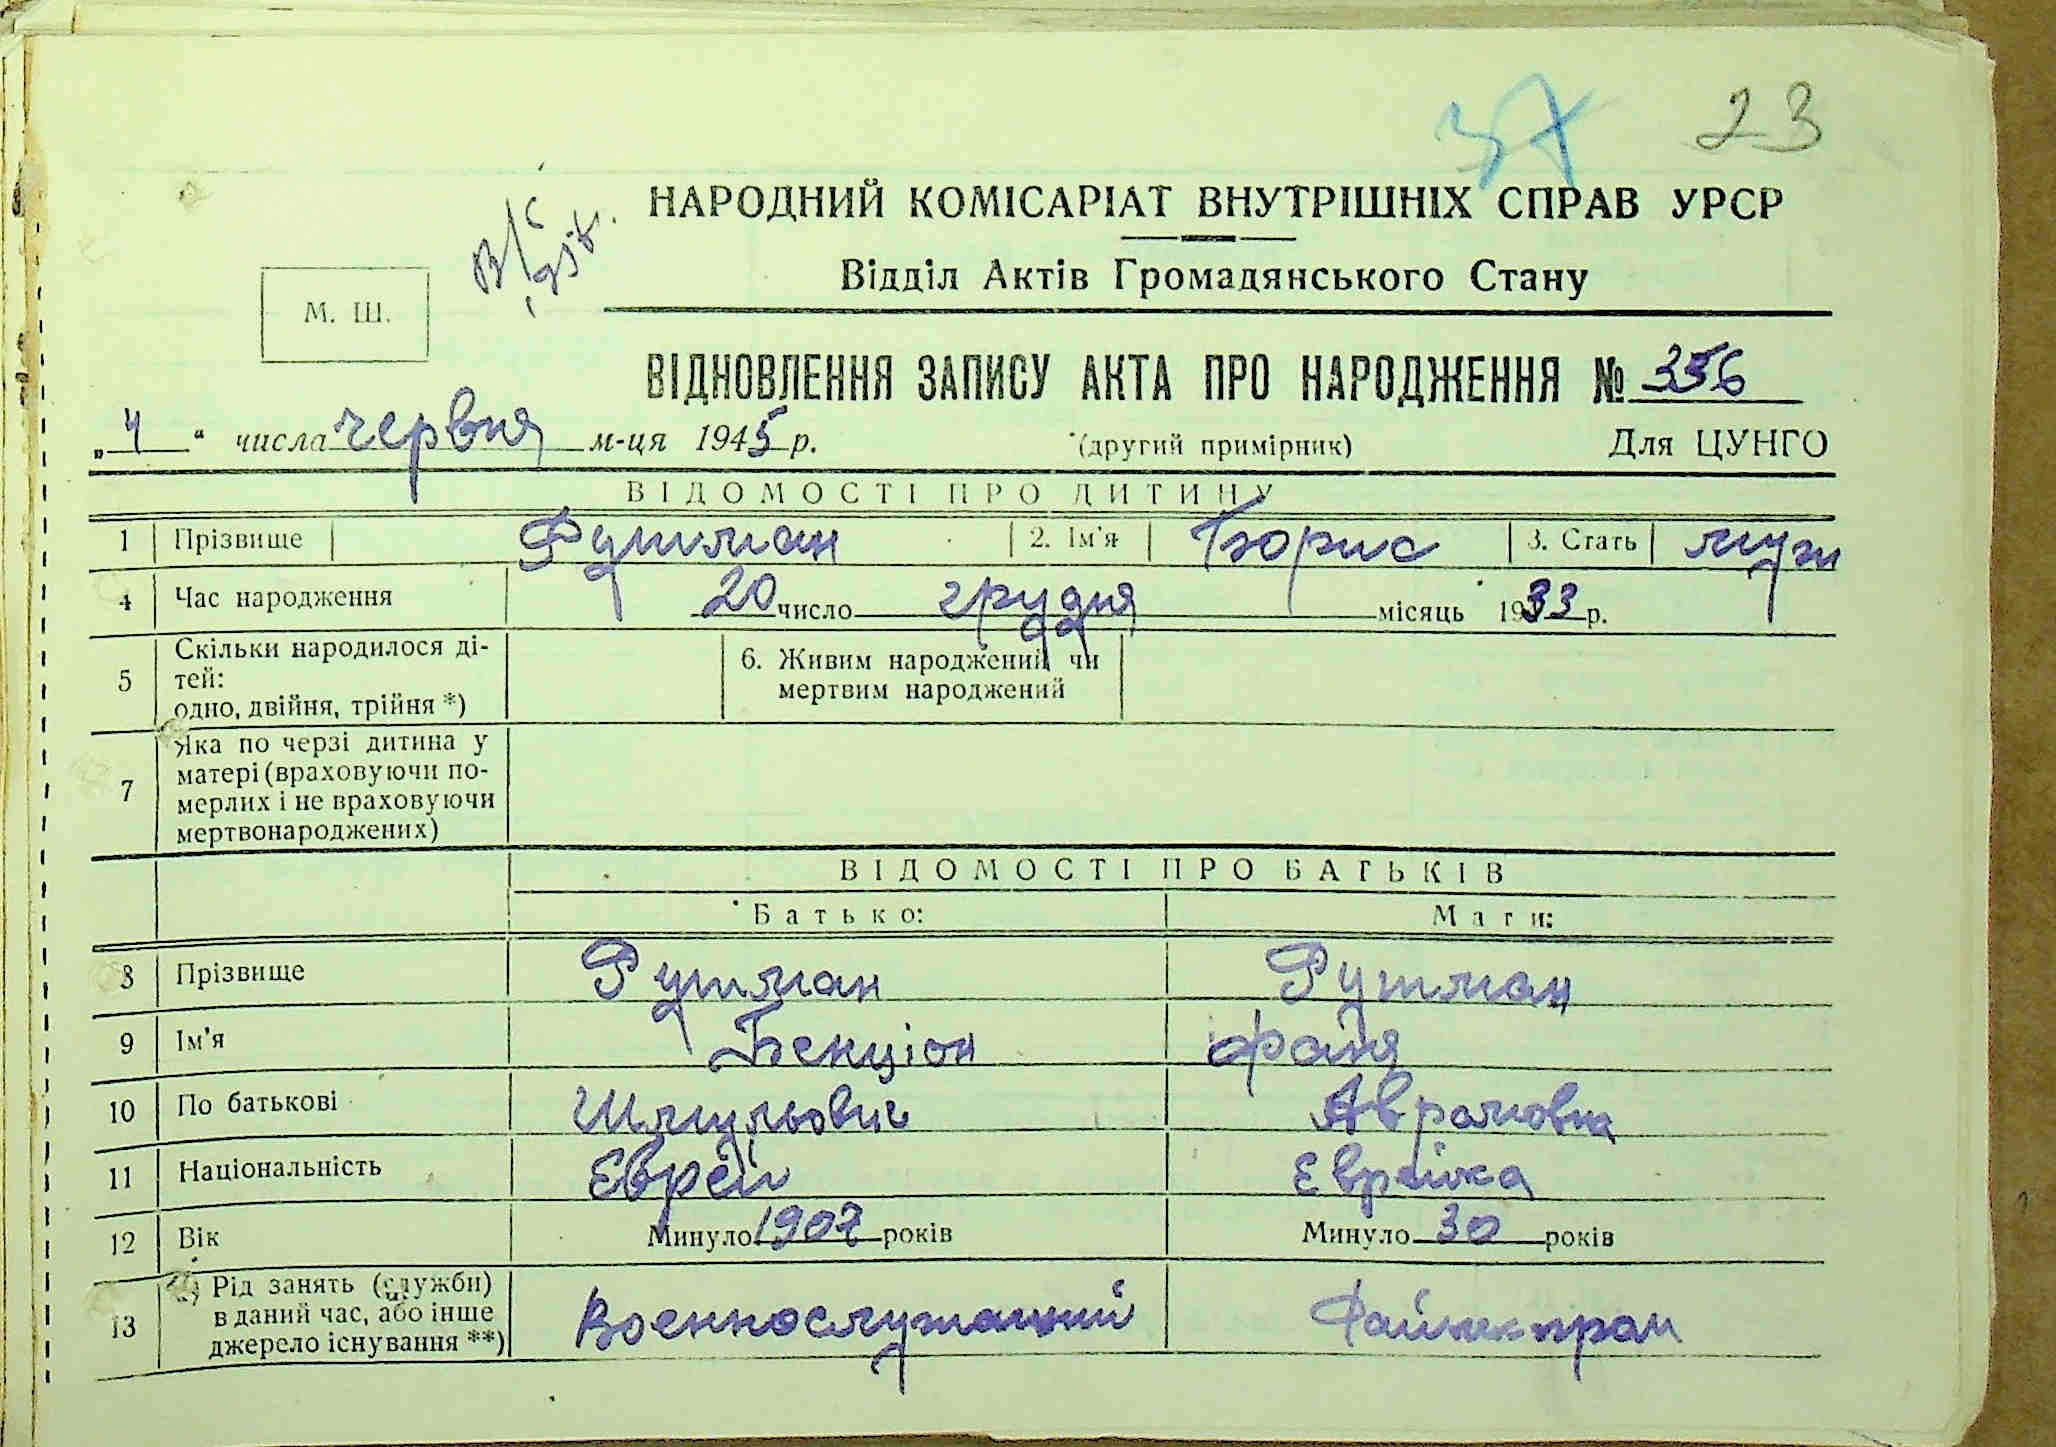 37 23
НАРОДНИЙ КОМІСАРІАТ ВНУТРІШНІХ СПРАВ УРСР
Відділ Актів Громадянського Стану
М. Ш.
ВІДНОВЛЕННЯ ЗАПИСУ АКТА ПРО НАРОДЖЕННЯ № 356
„ 4 “ числа червня м-ця 1945 р. (другий примірник) Для ЦУНГО
ВІДОМОСТІ ПРО ДИТИНУ
1 Прізвище Фушман 2. Ім'я Борис 3. Стать муж
4 Час народження 20 число грудня місяць 1933 р.
5 Скільки народилося ді-
тей:
одно, двійня, трійня *)
6. Живим народжений чи
мертвим народжений
7 Яка по черзі дитина у
матері (враховуючи по-
мерлих і не враховуючи
мертвонароджених)
ВІДОМОСТІ ПРО БАТЬКІВ
Батько: Мати:
8 Прізвище Фушман Фушман
9 Ім'я Бенціон Фаня
10 По батькові Шмульович Аврамовна
11 Національність Еврей Еврейка
12 Вік Минуло 1907 років Минуло 30 років
13 а) Рід занять (служби)
в даний час, або інше
джерело існування **)
Военнослужащий